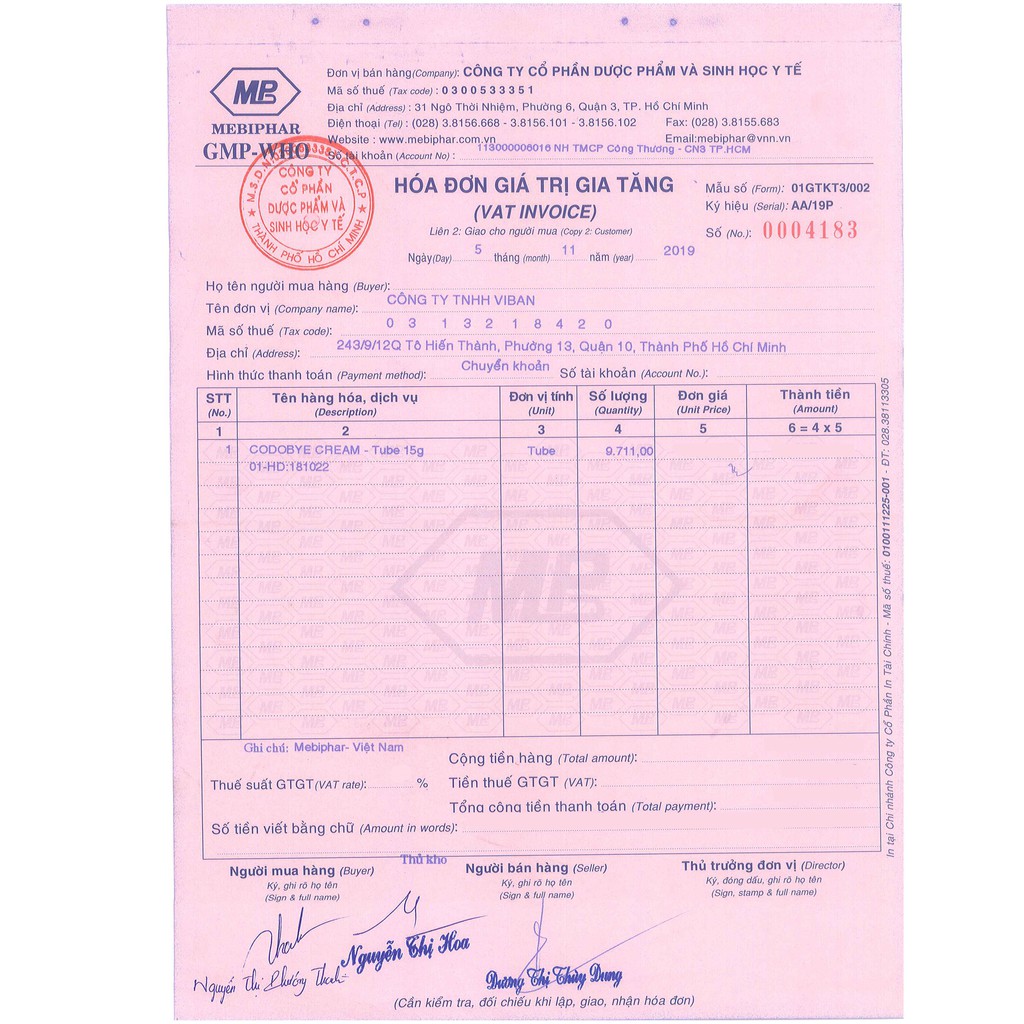 MP
MEBIPHAR
GMP-WHO
Đơn vị bán hàng(Company): CÔNG TY CỔ PHẦN DƯỢC PHẨM VÀ SINH HỌC Y TẾ
Mã số thuế (Tax code) : 0300533351
Địa chỉ (Address) : 31 Ngô Thời Nhiệm, Phường 6, Quận 3, TP. Hồ Chí Minh
Điện thoại (Tel) : (028) 3.8156.668 - 3.8156.101 - 3.8156.102 Fax: (028) 3.8155.683
Website : www.mebiphar.com.vn Email:mebiphar@vnn.vn
Số tài khoản (Account No) : 113000006016 NH TMCP Công Thương - CN3 TP.HCM
CÔNG TY
CỔ PHẦN
DƯỢC PHẨM VÀ
SINH HỌC Y TẾ
THÀNH PHỐ HỒ CHÍ MINH
HÓA ĐƠN GIÁ TRỊ GIA TĂNG
(VAT INVOICE)
Liên 2: Giao cho người mua (Copy 2: Customer)
Ngày(Day) 5 tháng (month) 11 năm (year) 2019
Mẫu số (Form): 01GTKT3/002
Ký hiệu (Serial): AA/19P
Số (No.): 0004183
Họ tên người mua hàng (Buyer):
Tên đơn vị (Company name): CÔNG TY TNHH VIBAN
Mã số thuế (Tax code): 0 3 1 3 2 1 8 4 2 0
Địa chỉ (Address): 243/9/12Q Tô Hiến Thành, Phường 13, Quận 10, Thành Phố Hồ Chí Minh
Hình thức thanh toán (Payment method): Chuyển khoản Số tài khoản (Account No.):
STT Tên hàng hóa, dịch vụ Đơn vị tính Số lượng Đơn giá Thành tiền
(No.) (Description) (Unit) (Quantity) (Unit Price) (Amount)
1 2 3 4 5 6 = 4 x 5
1 CODOBYE CREAM - Tube 15g Tube 9.711,00
01-HD:181022
MP
Ghi chú: Mebiphar- Việt Nam
Cộng tiền hàng (Total amount):
Thuế suất GTGT(VAT rate): % Tiền thuế GTGT (VAT):
Tổng cộng tiền thanh toán (Total payment):
Số tiền viết bằng chữ (Amount in words):
Người mua hàng (Buyer) Thủ kho Người bán hàng (Seller) Thủ trưởng đơn vị (Director)
Ký, ghi rõ họ tên Ký, ghi rõ họ tên Ký, đóng dấu, ghi rõ họ tên
(Sign & full name) (Sign & full name) (Sign, stamp & full name)
Nguyễn Thị Hoa
Nguyễn Thị Phương Thanh
Dương Thị Thùy Dung
(Cần kiểm tra, đối chiếu khi lập, giao, nhận hóa đơn)
In tại Chi nhánh Công ty Cổ Phần In Tài Chính - Mã số thuế: 0100111225-001 - ĐT: 028.38113305